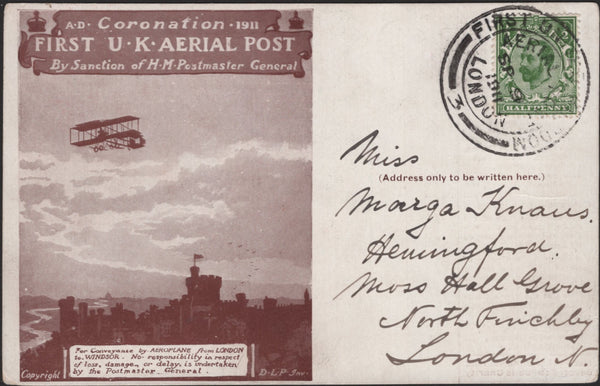 A·D· Coronation · 1911
FIRST U·K·AERIAL POST
By Sanction of H·M·Postmaster General
For Conveyance by AEROPLANE from LONDON
to WINDSOR. No responsibility in respect
of loss, damage, or delay, is undertaken
by the Postmaster General.
Copyright
D·L·P· Inv·
FIRST
LONDON
3
HALFPENNY
(Address only to be written here.)
Miss
Marga Knaus.
Hemingford.
Moss Hall Grove
North Finchley
London N.